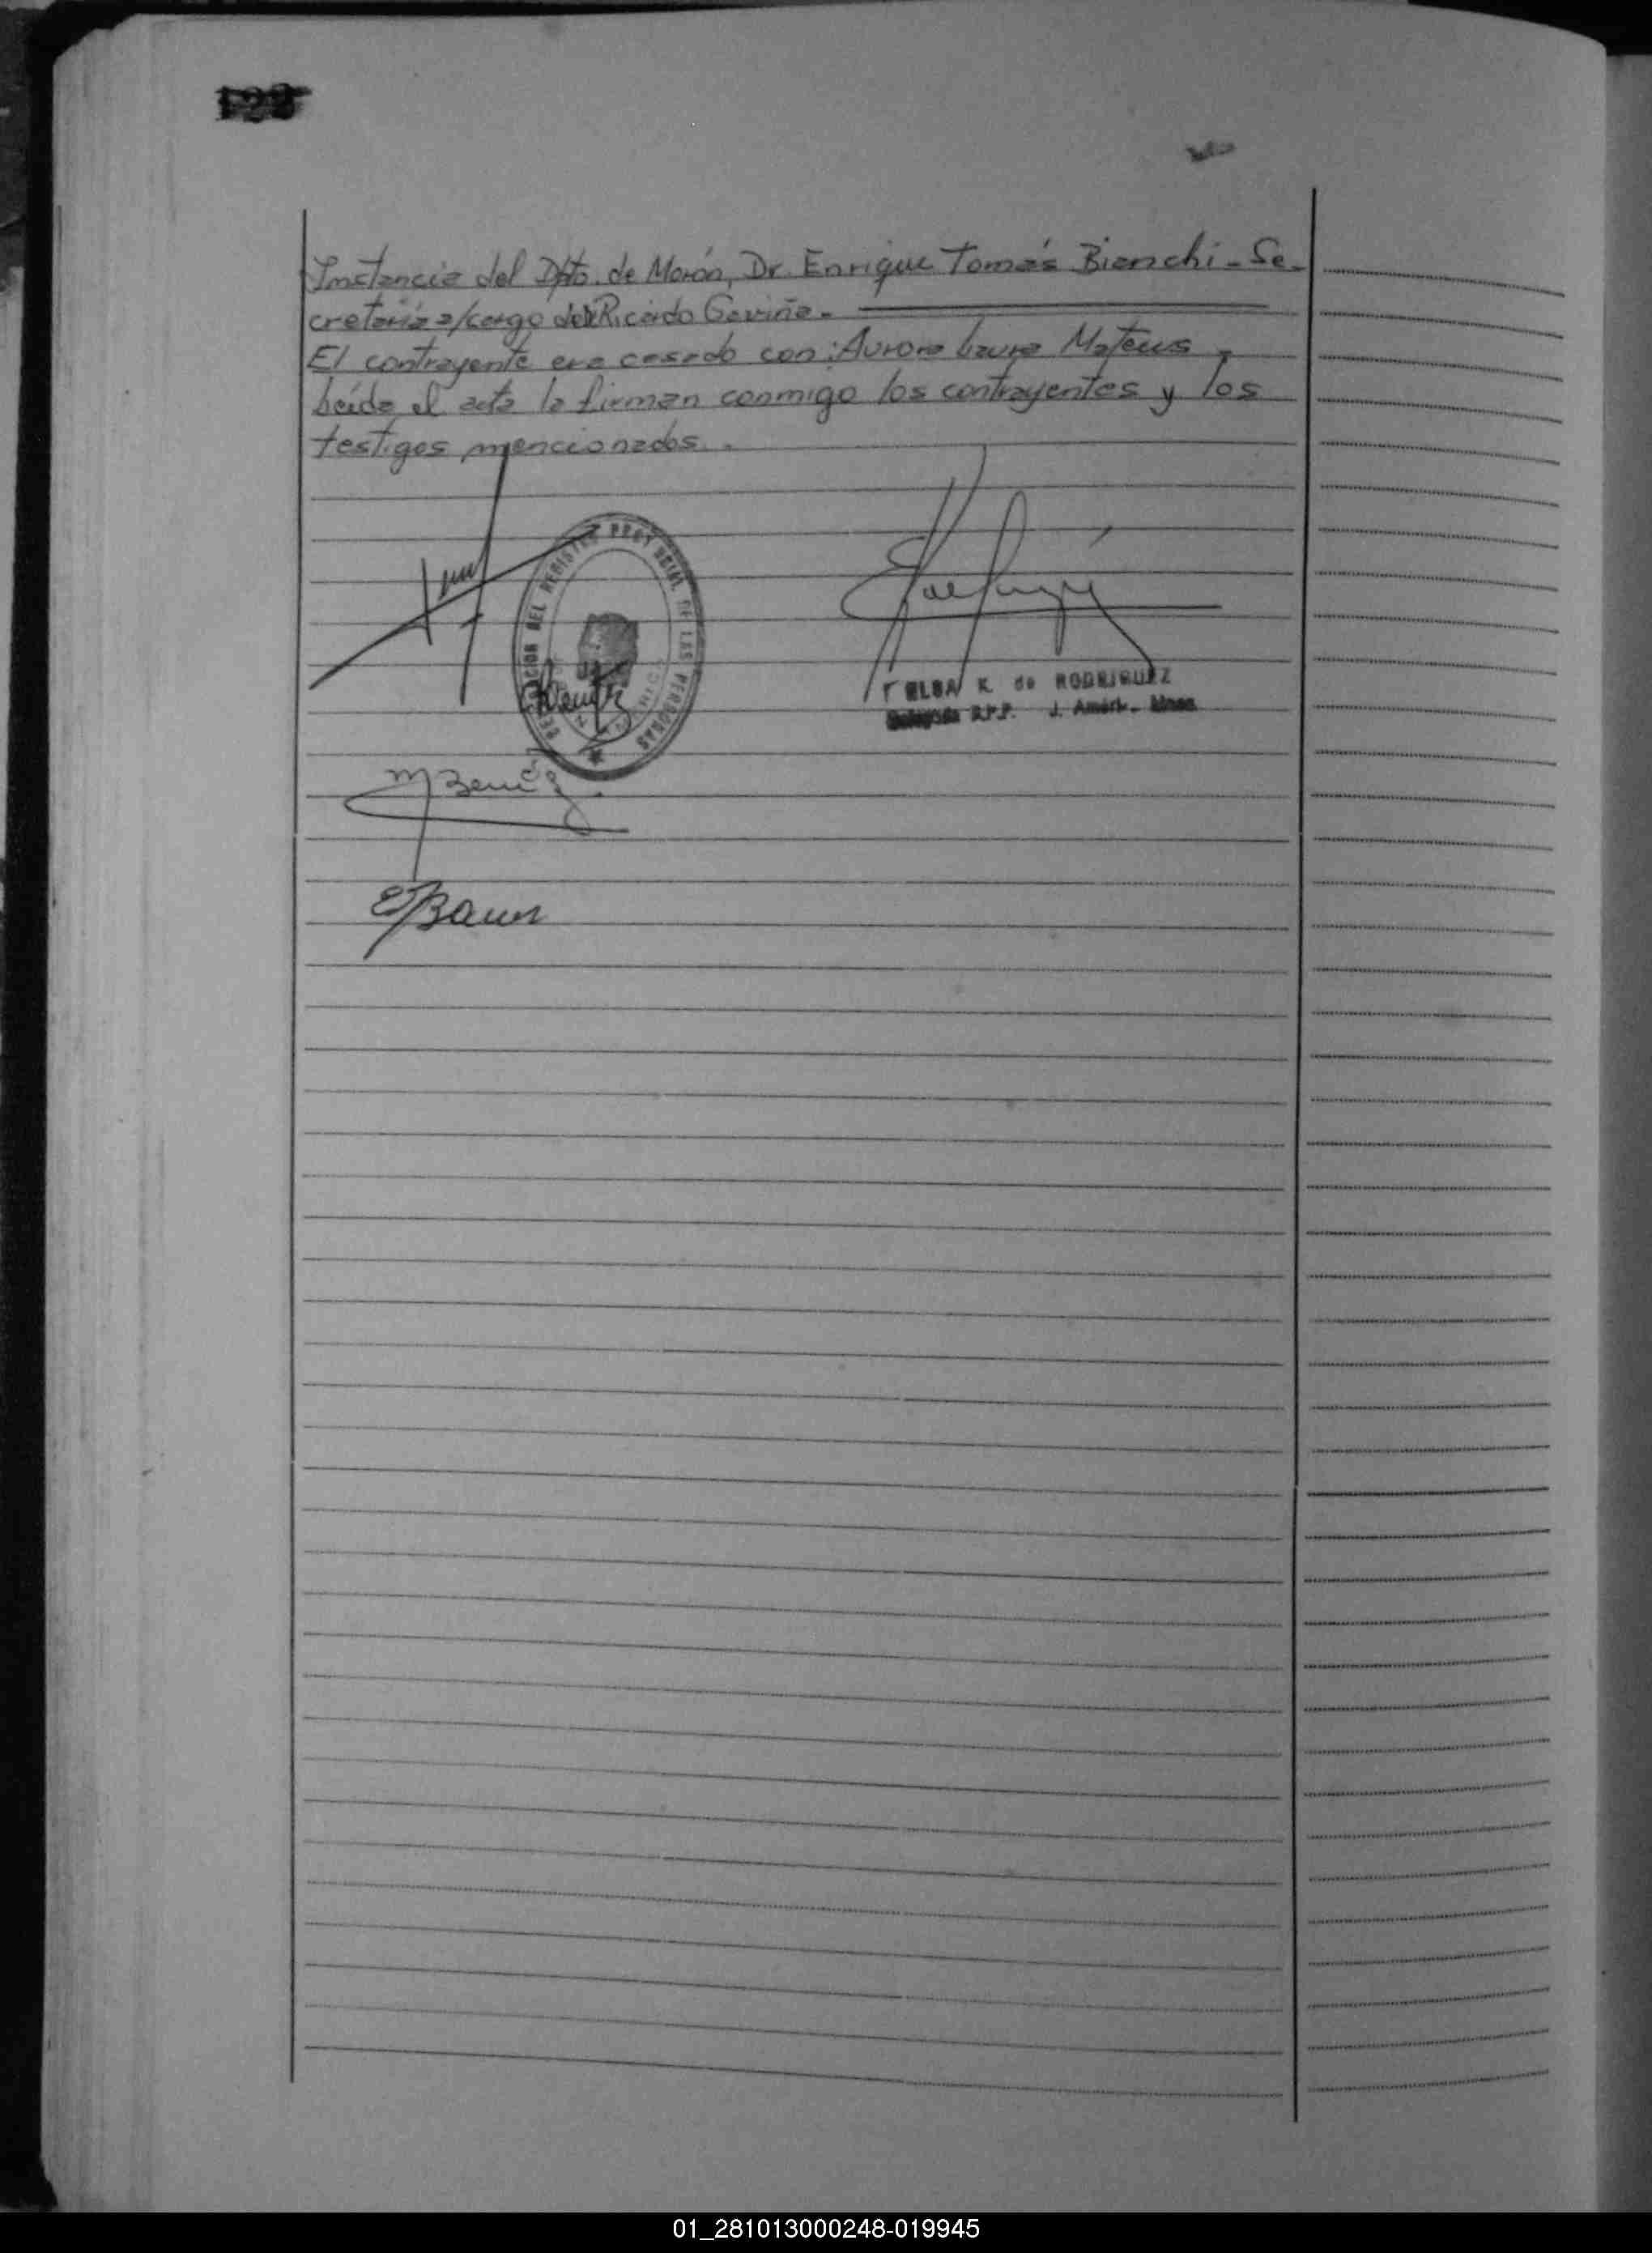 Instancia del Dpto. de Morón, Dr. Enrique Tomás Bianchi - Se-
cretaría a/cargo del Ricardo Gaviña.-
El contrayente era casado con: Aurora Laura Mateus -
Leída el acta la firman conmigo los contrayentes y los
testigos mencionados.-
DEL REGISTRO PROVINCIAL DE LAS PERSONAS
ELSA K. de RODRIGUEZ
Delegada R.P.P.
EBaun
01_281013000248-019945